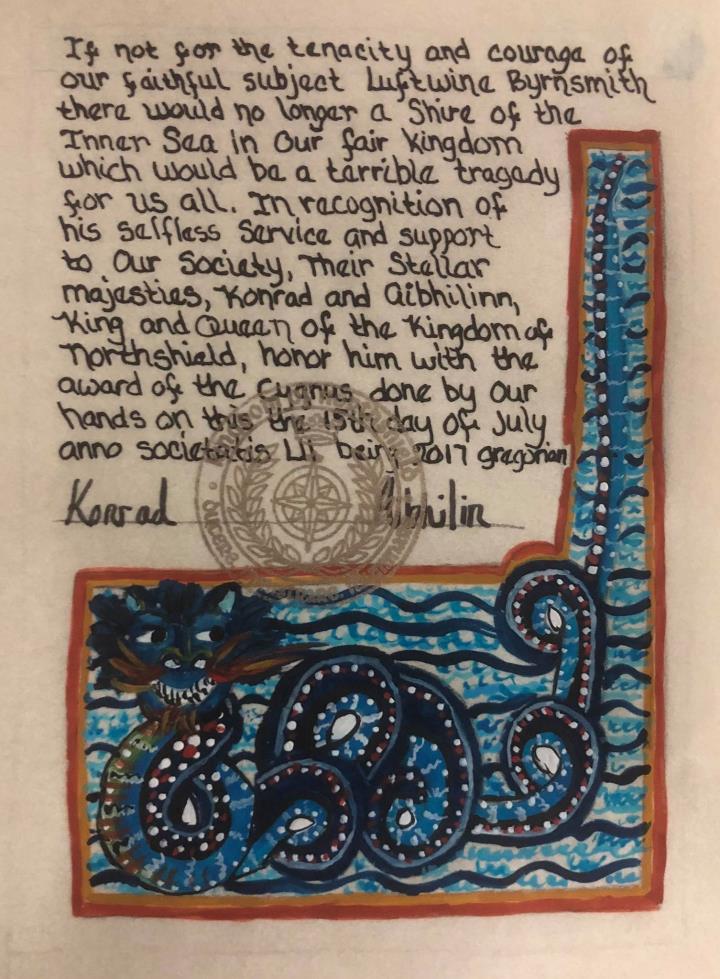 If not for the tenacity and courage of
our faithful subject Luftwine Byrnsmith
there would no longer a Shire of the
Inner Sea in Our fair kingdom
which would be a terrible tragady
for us all. In recognition of
his selfless Service and support
to Our Society, Their Stellar
majesties, Konrad and Aibhilinn,
King and Queen of the Kingdom of
Northshield, honor him with the
award of the Cygnus done by Our
hands on this the 15th day of July
anno societatis LII being 2017 gregorian
Konrad Aibhilin